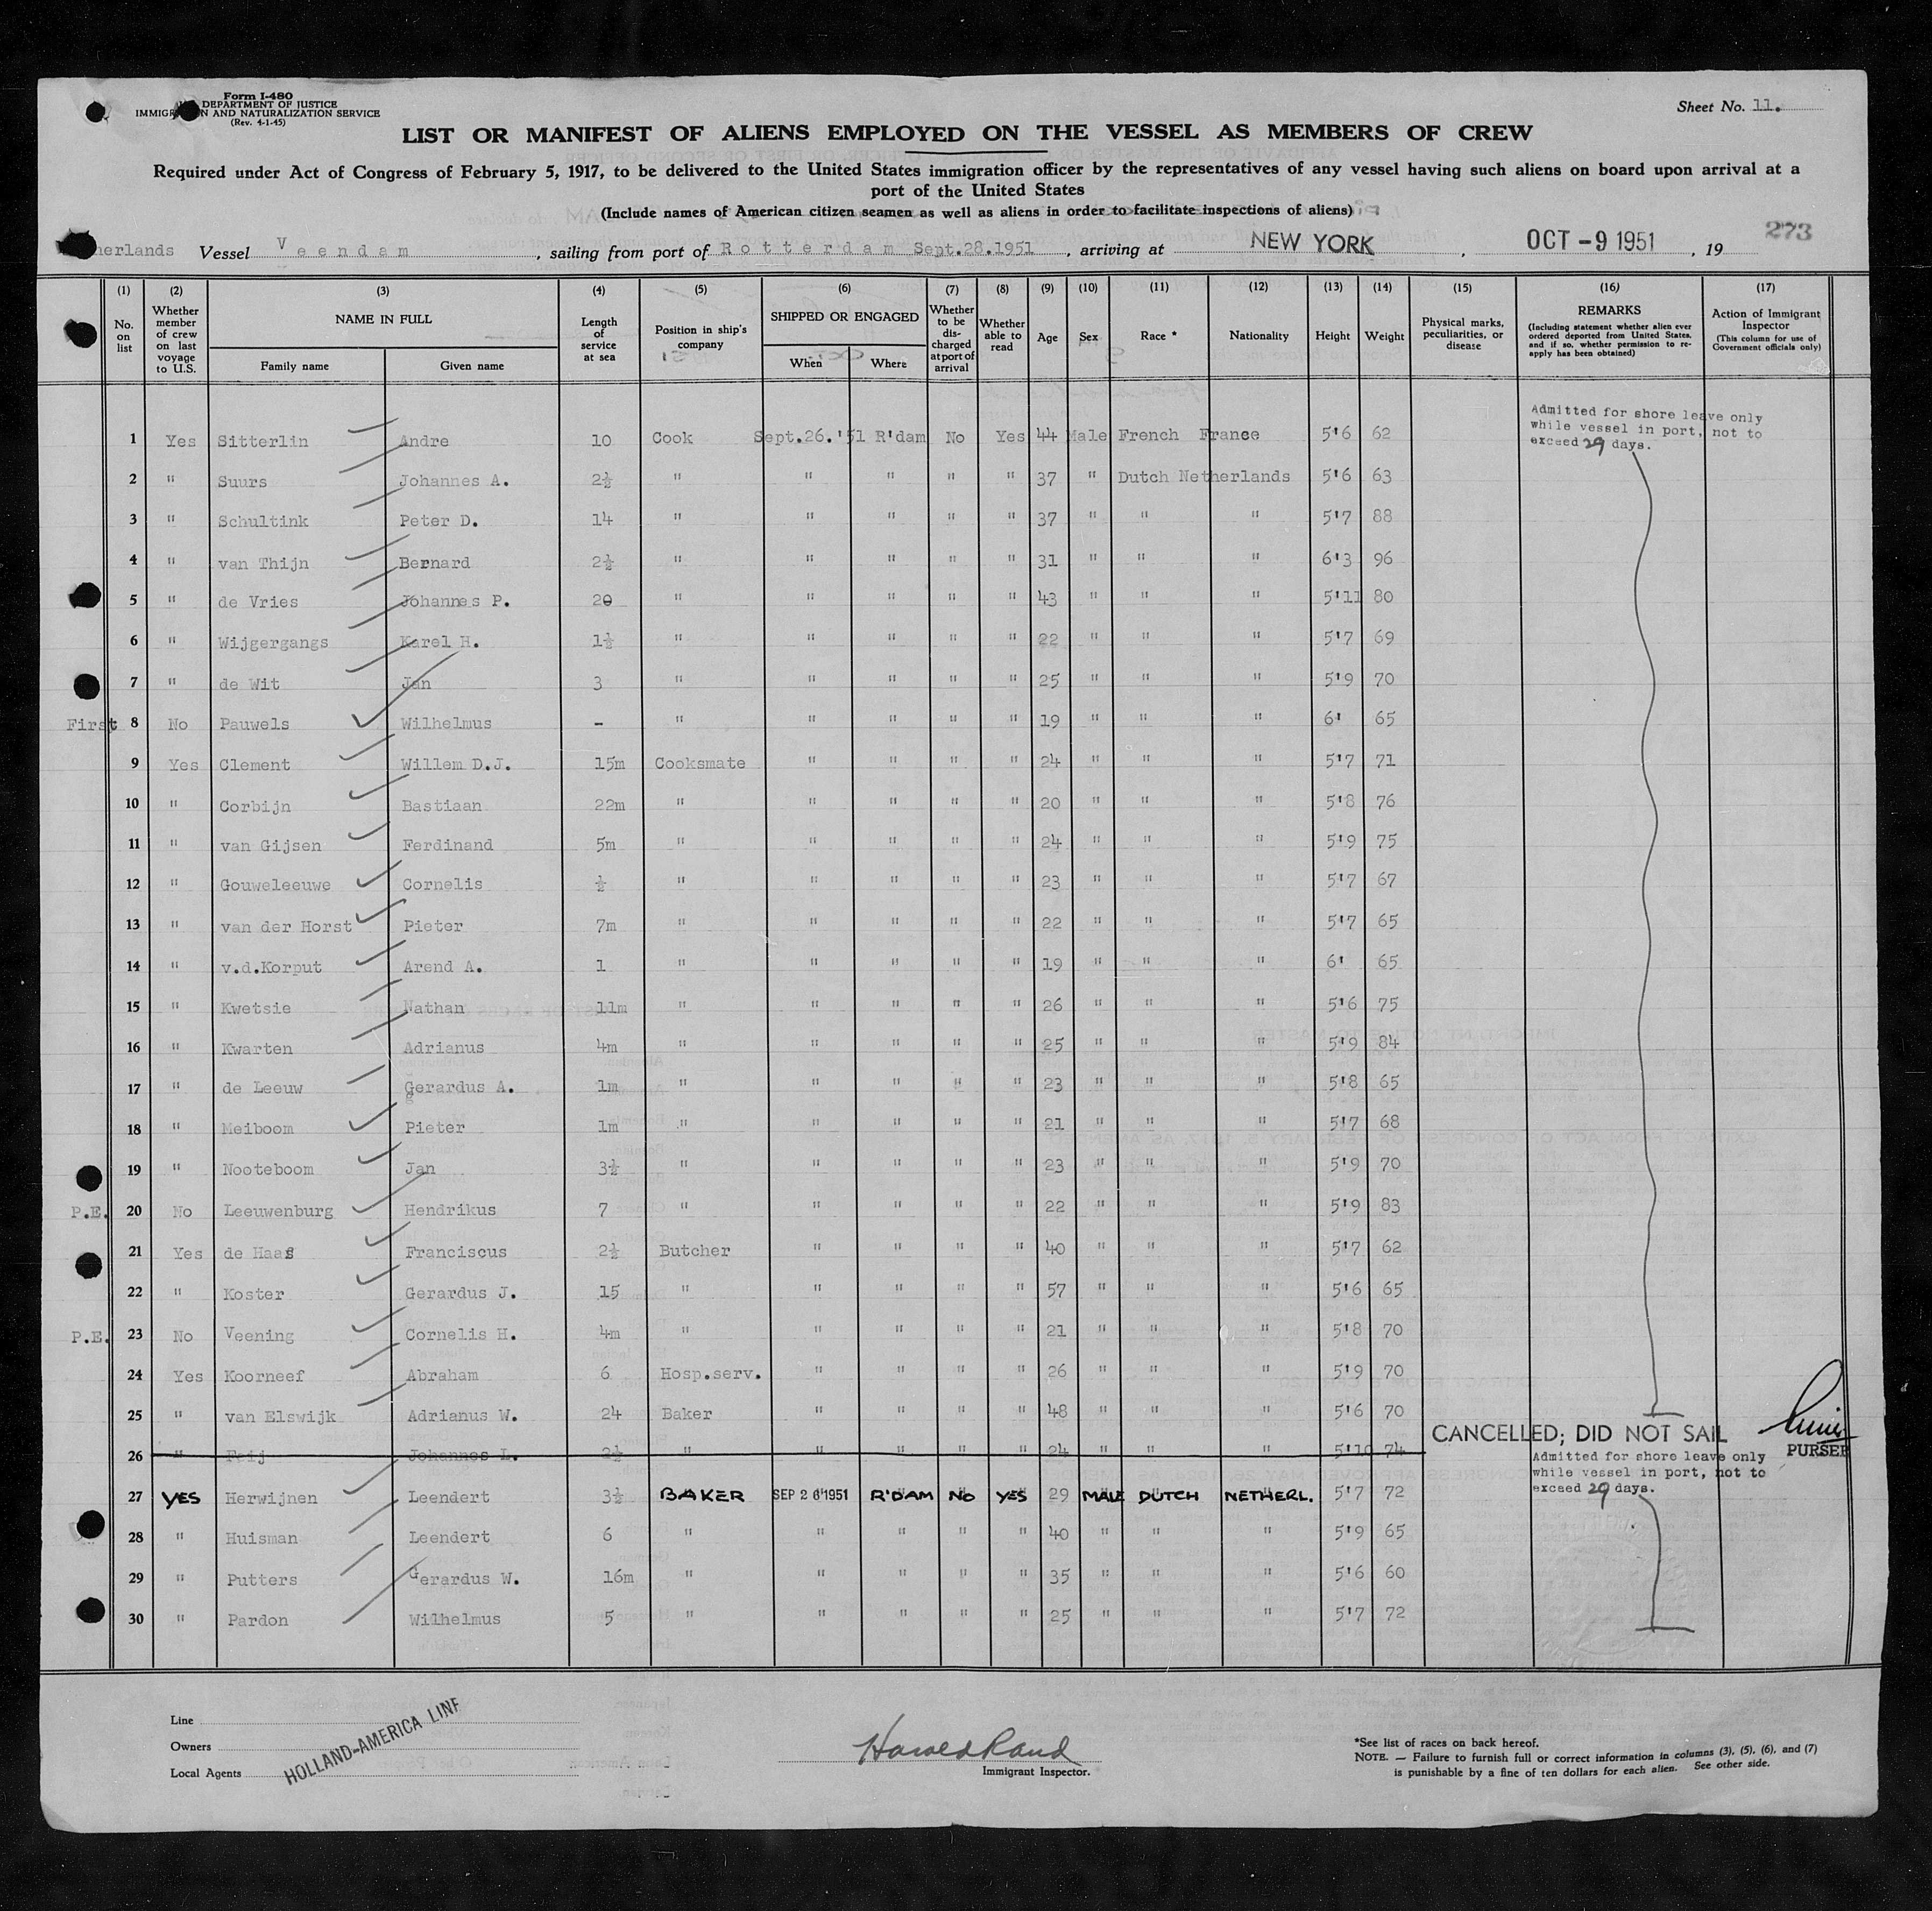 Form I-480
DEPARTMENT OF JUSTICE
IMMIGRATION AND NATURALIZATION SERVICE
(Rev. 4-1-45)
Sheet No. 11.
LIST OR MANIFEST OF ALIENS EMPLOYED ON THE VESSEL AS MEMBERS OF CREW
Required under Act of Congress of February 5, 1917, to be delivered to the United States immigration officer by the representatives of any vessel having such aliens on board upon arrival at a
port of the United States
(Include names of American citizen seamen as well as aliens in order to facilitate inspections of aliens)
273
herlands Vessel Veendam, sailing from port of Rotterdam Sept.28.1951, arriving at NEW YORK, OCT -9 1951, 19
(1) No. on list
(2) Whether member of crew on last voyage to U.S.
(3) NAME IN FULL Family name Given name
(4) Length of service at sea
(5) Position in ship's company
(6) SHIPPED OR ENGAGED When Where
(7) Whether to be discharged at port of arrival
(8) Whether able to read
(9) Age
(10) Sex
(11) Race *
(12) Nationality
(13) Height
(14) Weight
(15) Physical marks, peculiarities, or disease
(16) REMARKS (Including statement whether alien ever ordered deported from United States, and if so, whether permission to reapply has been obtained)
(17) Action of Immigrant Inspector (This column for use of Government officials only)
1 Yes Sitterlin Andre 10 Cook Sept.26.'51 R'dam No Yes 44 Male French France 5'6 62
Admitted for shore leave only
while vessel in port, not to
exceed 29 days.
2 " Suurs Johannes A. 2½ " " " " " 37 " Dutch Netherlands 5'6 63
3 " Schultink Peter D. 14 " " " " " 37 " " " 5'7 88
4 " van Thijn Bernard 2½ " " " " " 31 " " " 6'3 96
5 " de Vries Johannes P. 20 " " " " " 43 " " " 5'11 80
6 " Wijgergangs Karel H. 1½ " " " " " 22 " " " 5'7 69
7 " de Wit Jan 3 " " " " " 25 " " " 5'9 70
First 8 No Pauwels Wilhelmus - " " " " " 19 " " " 6' 65
9 Yes Clement Willem D.J. 15m Cooksmate " " " " 24 " " " 5'7 71
10 " Corbijn Bastiaan 22m " " " " " 20 " " " 5'8 76
11 " van Gijsen Ferdinand 5m " " " " " 24 " " " 5'9 75
12 " Gouweleeuwe Cornelis ½ " " " " " 23 " " " 5'7 67
13 " van der Horst Pieter 7m " " " " " 22 " " " 5'7 65
14 " v.d.Korput Arend A. 1 " " " " " 19 " " " 6' 65
15 " Kwetsie Nathan 11m " " " " " 26 " " " 5'6 75
16 " Kwarten Adrianus 4m " " " " " 25 " " " 5'9 84
17 " de Leeuw Gerardus A. 1m " " " " " 23 " " " 5'8 65
18 " Meiboom Pieter 1m " " " " " 21 " " " 5'7 68
19 " Nooteboom Jan 3½ " " " " " 23 " " " 5'9 70
P.E. 20 No Leeuwenburg Hendrikus 7 " " " " " 22 " " " 5'9 83
21 Yes de Haas Franciscus 2½ Butcher " " " " 40 " " " 5'7 62
22 " Koster Gerardus J. 15 " " " " " 57 " " " 5'6 65
P.E. 23 No Veening Cornelis H. 4m " " " " " 21 " " " 5'8 70
24 Yes Koorneef Abraham 6 Hosp.serv. " " " " 26 " " " 5'9 70
25 " van Elswijk Adrianus W. 24 Baker " " " " 48 " " " 5'6 70
CANCELLED; DID NOT SAIL
PURSER
26 " Feij Johannes L. 2½ " " " " " 24 " " " 5'10 74
Admitted for shore leave only
while vessel in port, not to
exceed 29 days.
27 YES Herwijnen Leendert 3½ BAKER SEP 26 1951 R'DAM NO YES 29 MALE DUTCH NETHERL. 5'7 72
28 " Huisman Leendert 6 " " " " " 40 " " " 5'9 65
29 " Putters Gerardus W. 16m " " " " " 35 " " " 5'6 60
30 " Pardon Wilhelmus 5 " " " " " 25 " " " 5'7 72
Line
Owners
Local Agents
HOLLAND-AMERICA LINE
Harold Rand
Immigrant Inspector.
*See list of races on back hereof.
NOTE. — Failure to furnish full or correct information in columns (3), (5), (6), and (7)
is punishable by a fine of ten dollars for each alien. See other side.